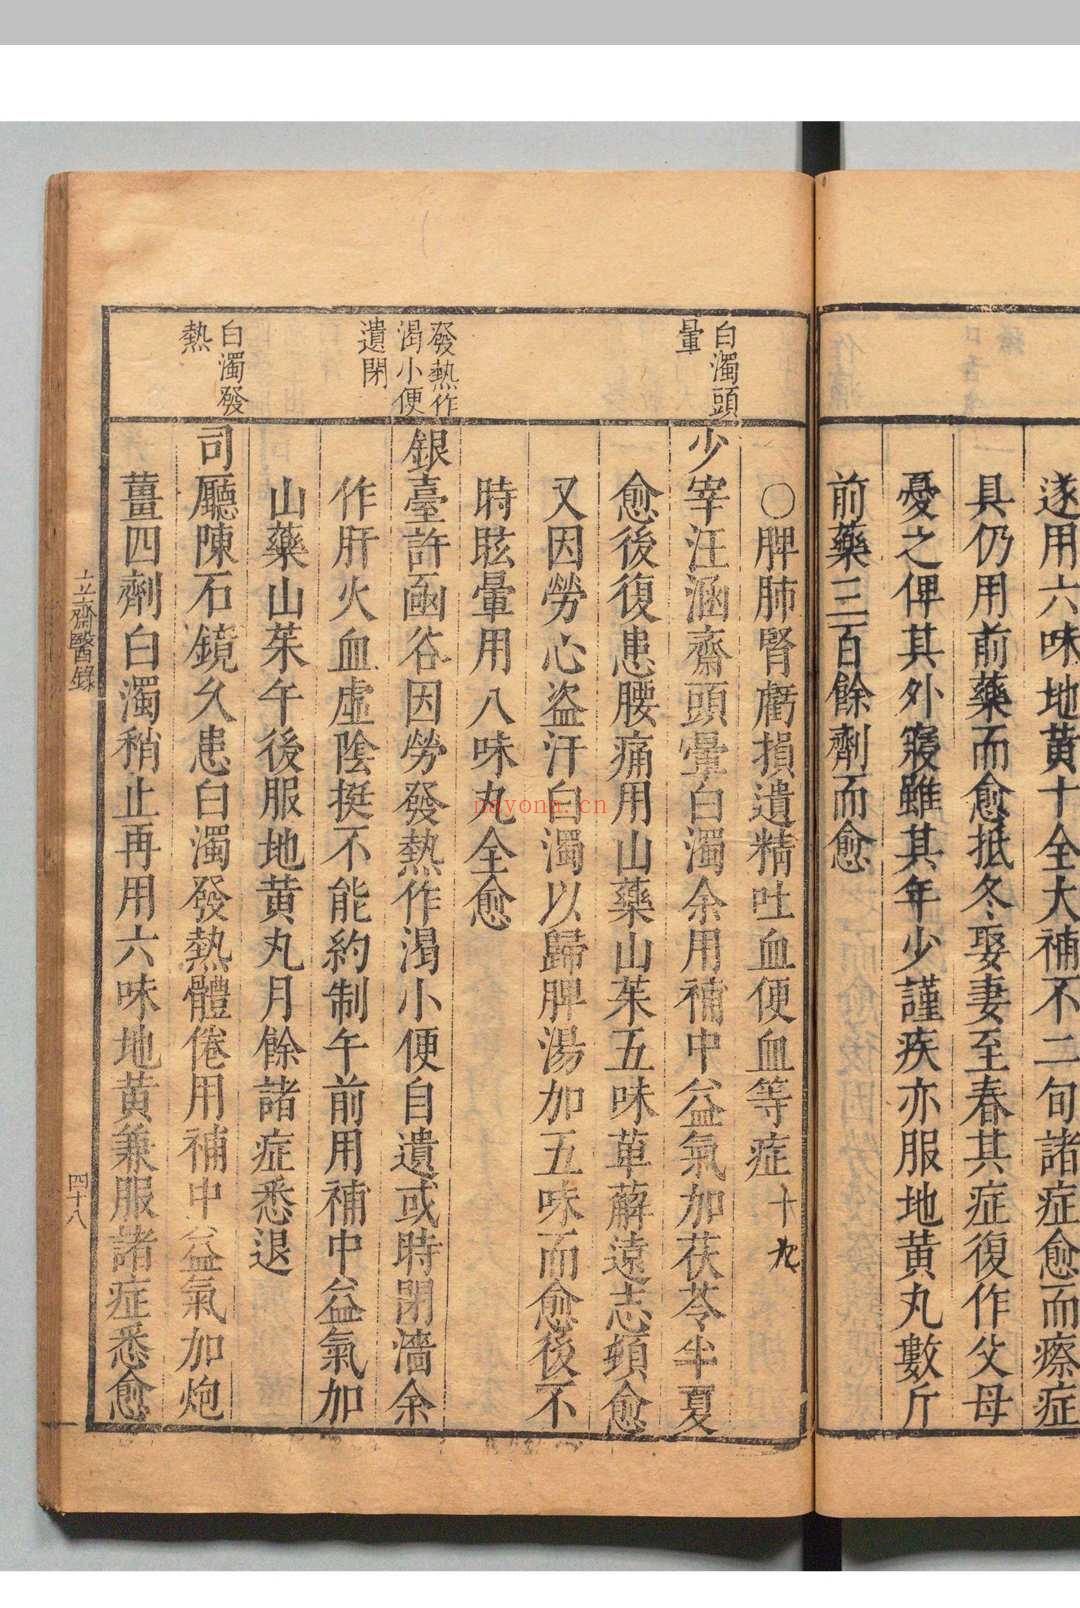 遂用六味地黄十全大補不二旬諸症愈而瘵症
具仍用前藥而愈抵冬娶妻至春其症復作父母
憂之俾其外寢雖其年少謹疾亦服地黄丸數斤
前藥三百餘劑而愈
○脾肺腎虧損遺精吐血便血等症十九
白濁頭
暈
少宰汪涵齋頭暈白濁余用補中益氣加茯苓半夏
愈後復患腰痛用山藥山茱五味萆薢遠志頓愈
又因勞心盗汗白濁以歸脾湯加五味而愈後不
時眩暈用八味丸全愈
發熱作
渴小便
遺閉
銀臺許函谷因勞發熱作渴小便自遺或時閉濇余
作肝火血虛陰挺不能約制午前用補中益氣加
山藥山茱午後服地黄丸月餘諸症悉退
白濁發
熱
司廳陳石鏡久患白濁發熱體倦用補中益氣加炮
薑四劑白濁稍止再用六味地黄兼服諸症悉愈
立齋醫錄
四十八
nayona.cn